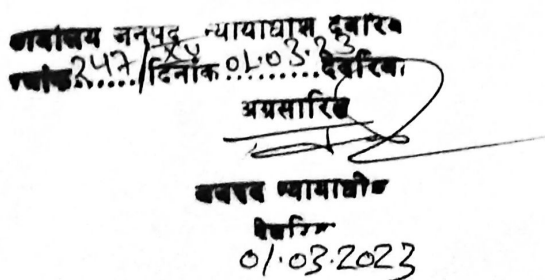 कार्यालय जनपद न्यायाधीश देवरिया
पत्रांक 247/XV दिनांक 01.03.23 देवरिया
अग्रसारित
जनपद न्यायाधीश
देवरिया
01.03.2023